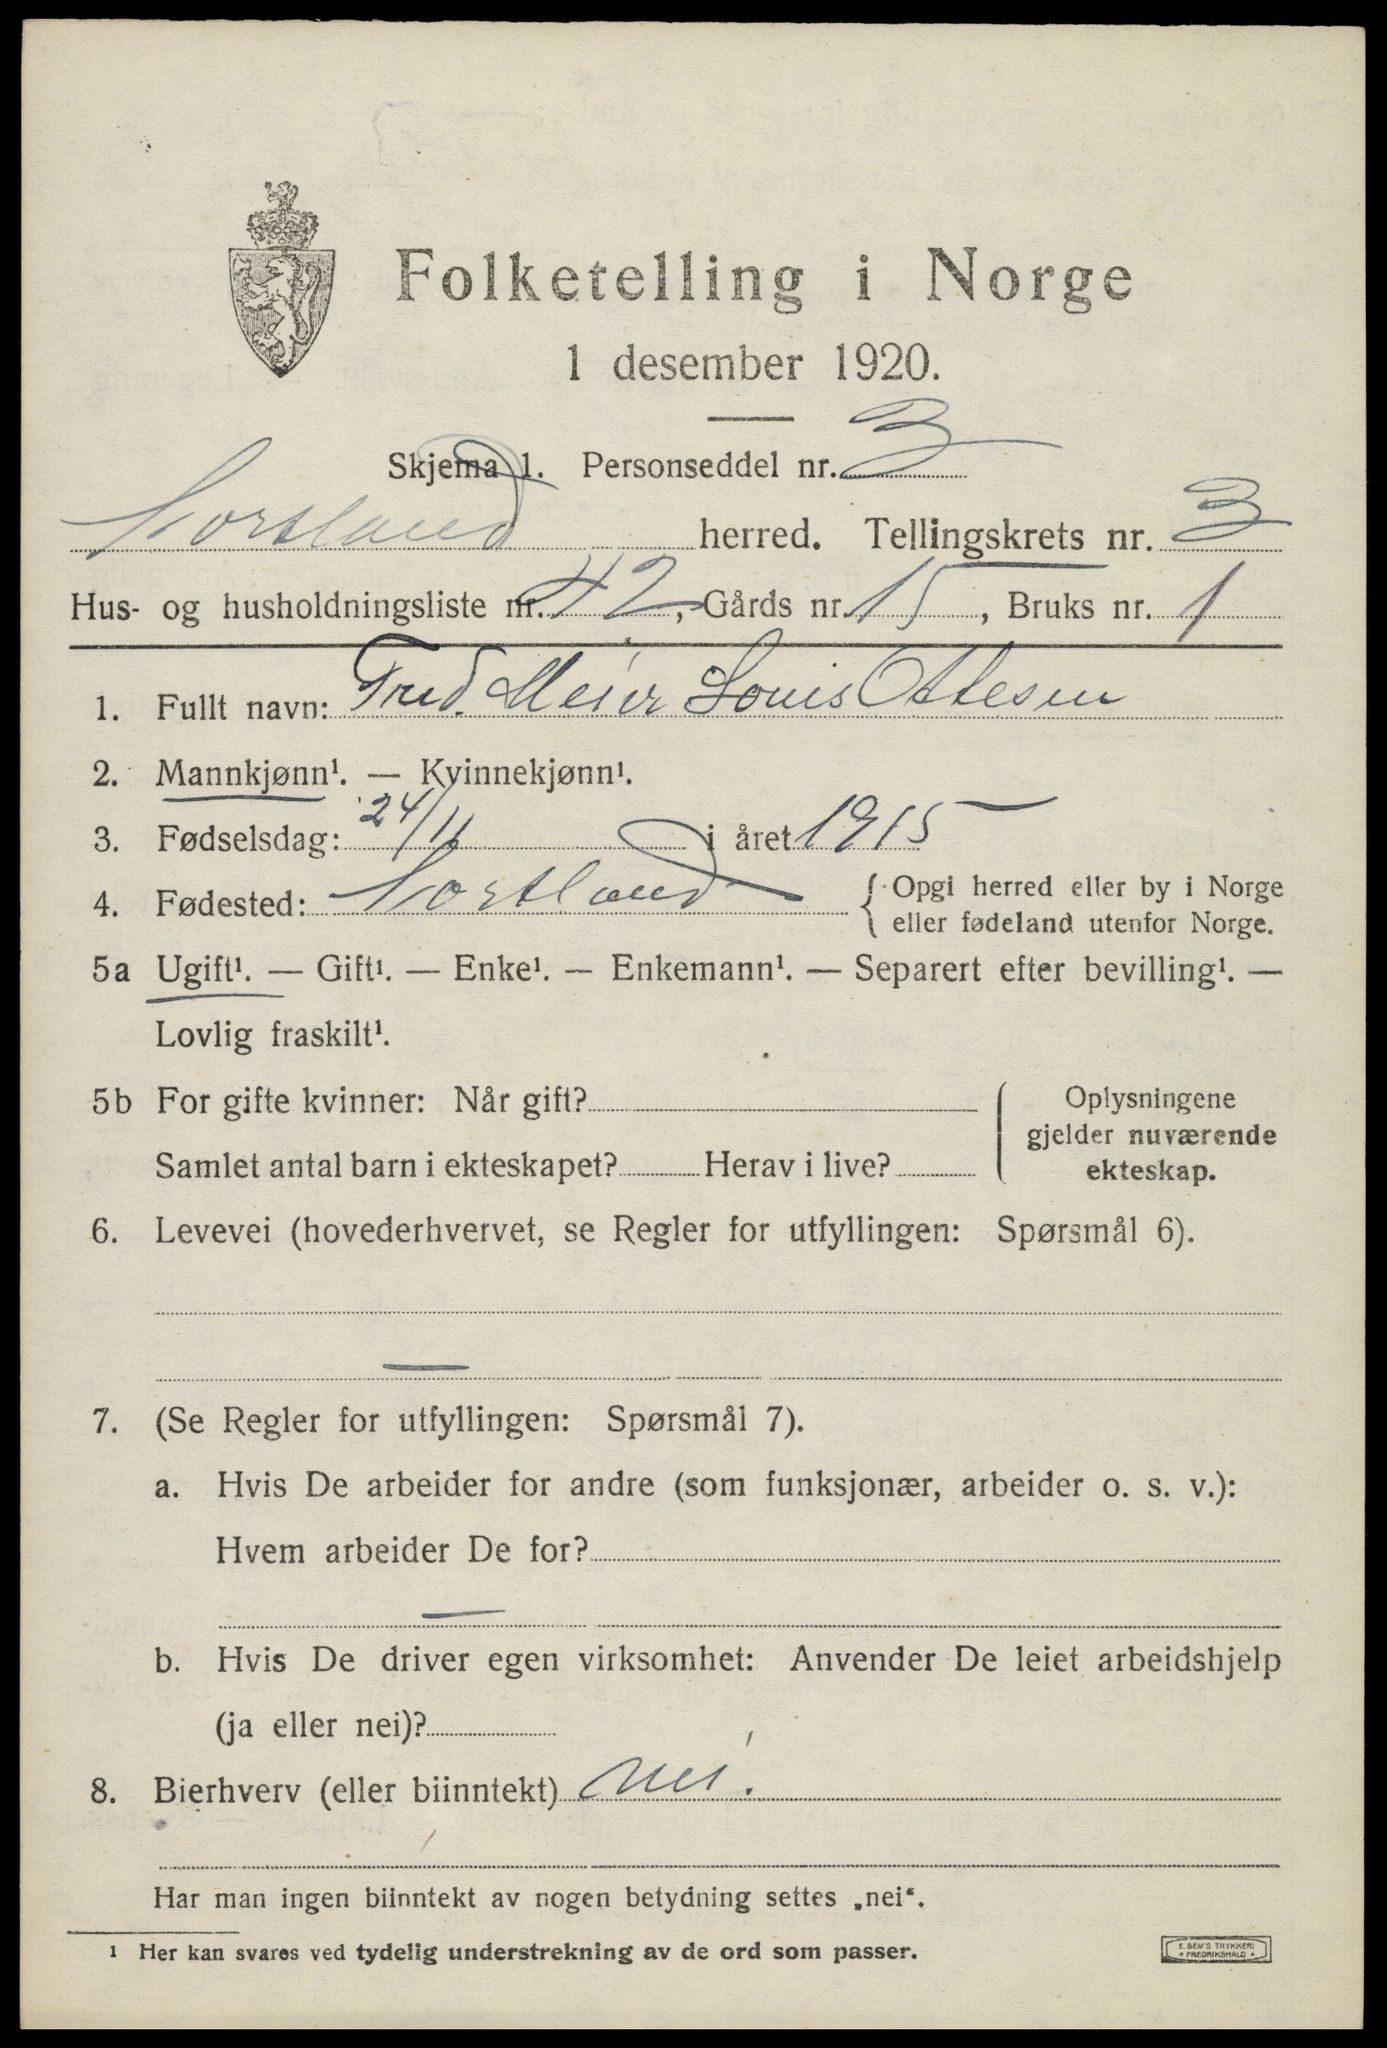 Folketelling i Norge
1 desember 1920.
Skjema 1. Personseddel nr. 3
Sortland herred. Tellingskrets nr. 3
Hus- og husholdningsliste nr. 42, Gårds nr. 15, Bruks nr. 1
1. Fullt navn: Fred. Meier Louis Ottesen
2. Mannkjønn¹. — Kvinnekjønn¹.
3. Fødselsdag: 24/11 i året 1915
4. Fødested: Sortland { Opgi herred eller by i Norge
eller fødeland utenfor Norge.
5a Ugift¹. — Gift¹. — Enke¹. — Enkemann¹. — Separert efter bevilling¹. —
Lovlig fraskilt¹.
5b For gifte kvinner: Når gift?
Samlet antal barn i ekteskapet? Herav i live?
Oplysningene
gjelder nuværende
ekteskap.
6. Levevei (hovederhvervet, se Regler for utfyllingen: Spørsmål 6).
—
7. (Se Regler for utfyllingen: Spørsmål 7).
a. Hvis De arbeider for andre (som funksjonær, arbeider o. s. v.):
Hvem arbeider De for?
—
b. Hvis De driver egen virksomhet: Anvender De leiet arbeidshjelp
(ja eller nei)?
8. Bierhverv (eller biinntekt) nei.
Har man ingen biinntekt av nogen betydning settes „nei“.
1 Her kan svares ved tydelig understrekning av de ord som passer.
E. SEM'S TRYKKERI
• FREDRIKSHALD •